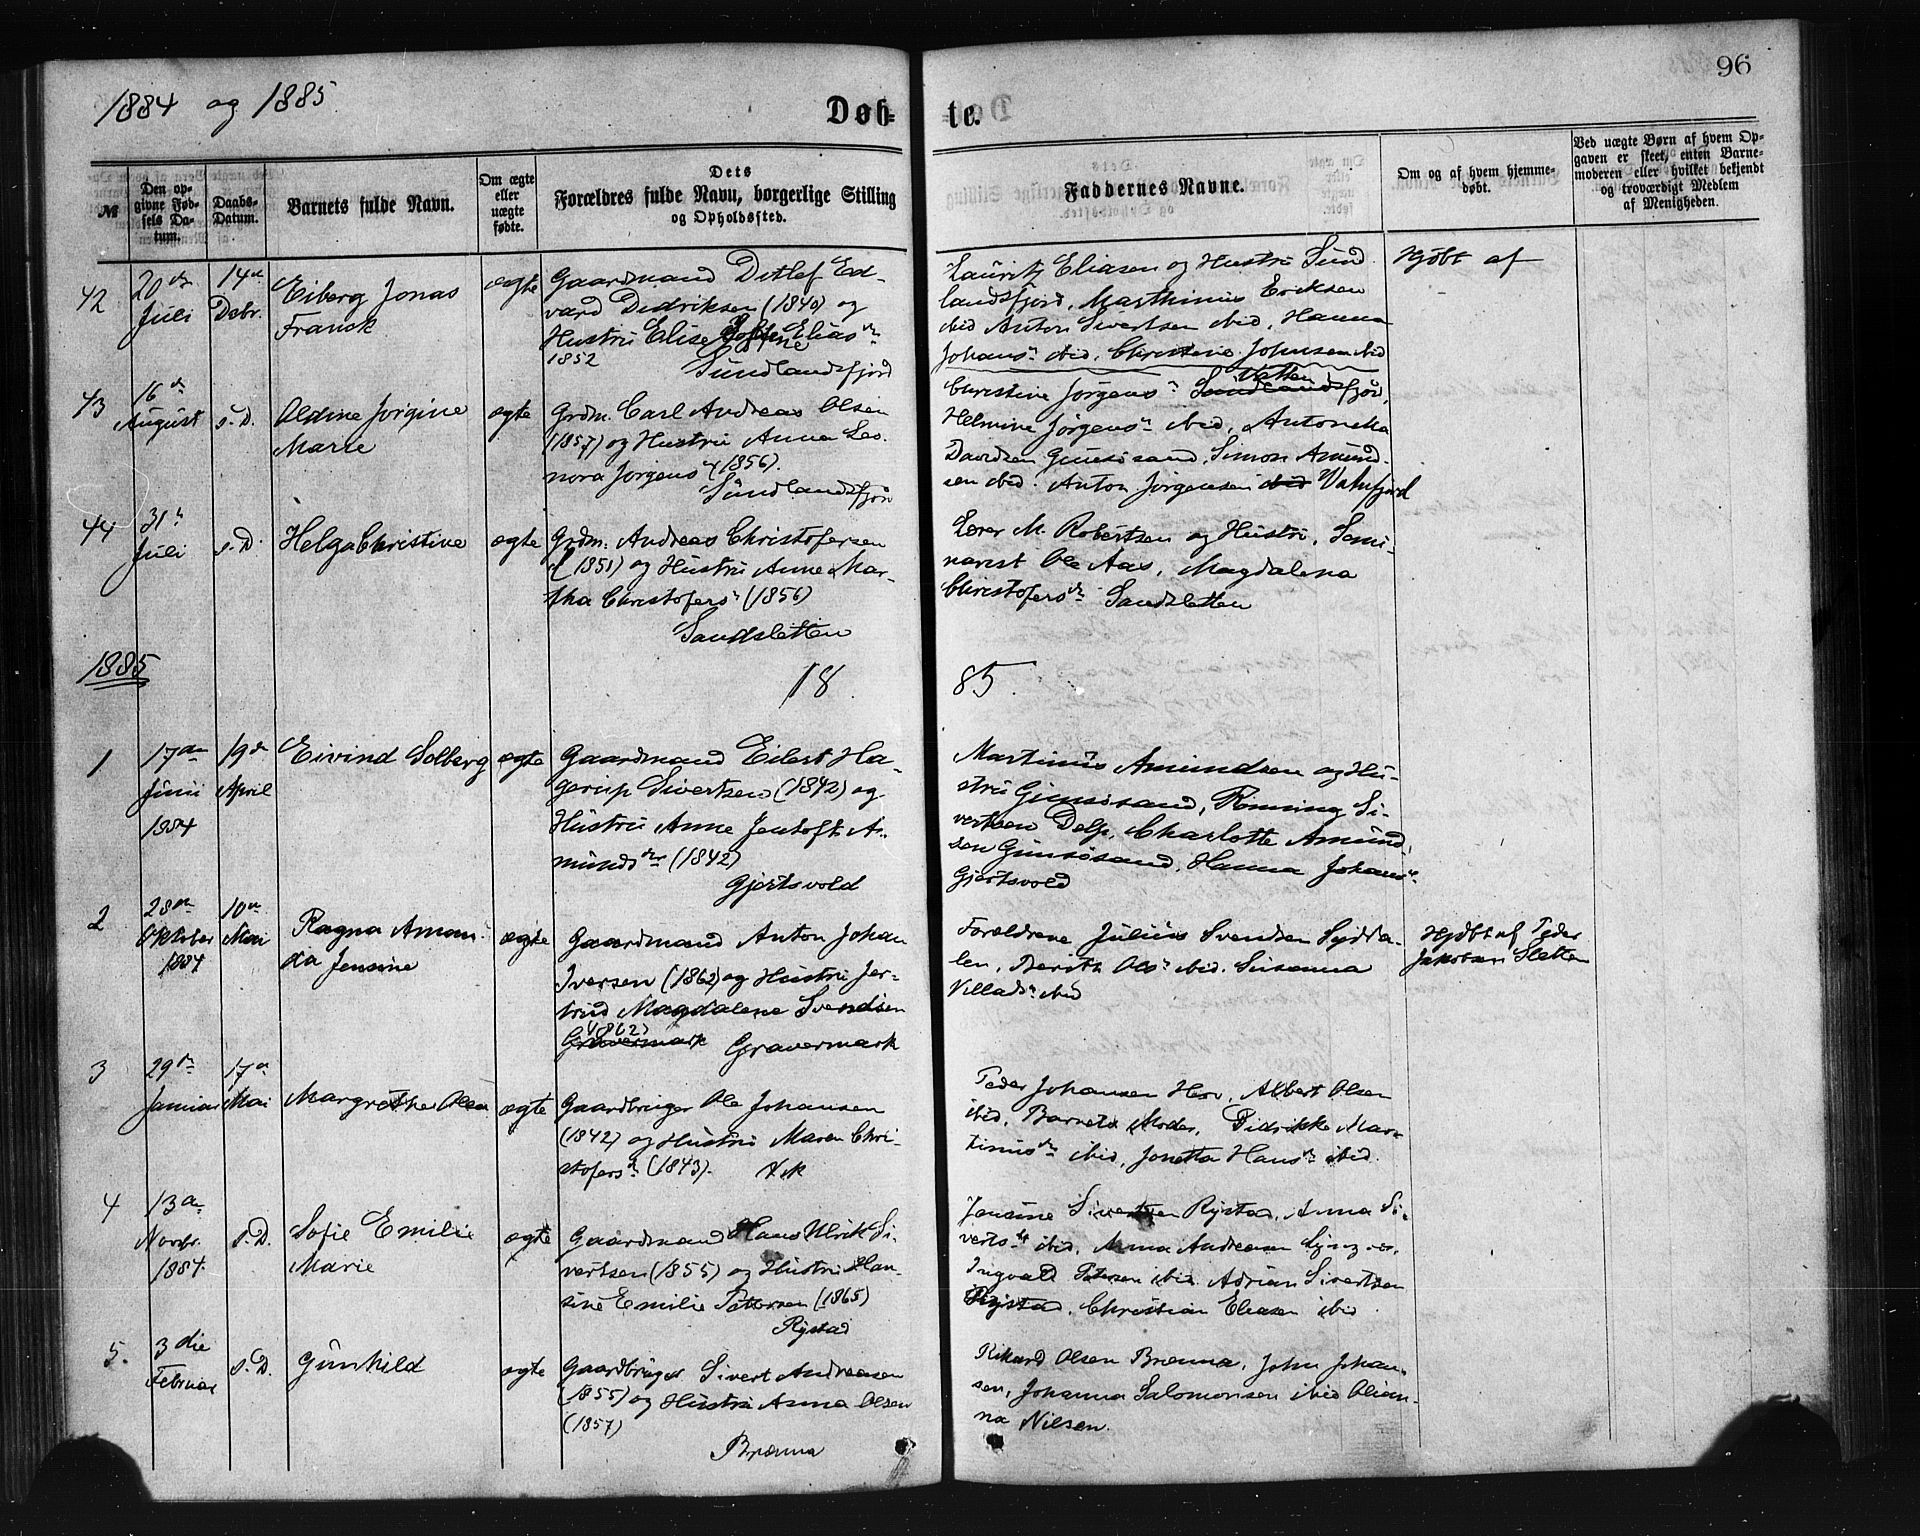 1884 og 1885
Døb-
te.
96
№
Den op-
givne Fød-
sels Da-
tum.
Daabs-
Datum.
Barnets fulde Navn.
Om ægte
eller
uægte
fødte.
Dets
Forældres fulde Navn, borgerlige Stilling
og Opholdssted.
Faddernes Navne.
Om og af hvem hjemme-
døbt.
Ved uægte Børn af hvem Op-
gaven er skeet, enten Barne-
moderen eller hvilket bekjendt
og troværdigt Medlem
af Menigheden.
42
20de
Juli
14de
Debr.
Eiberg Jonas
Franck
ægte
Gaardmand Detlef Ed-
vard Dedriksen (1840) og
Hustru Elise Elias dr
1852
Sundlandsfjord
Lauritz Eliasen og Hustru Sund
landsfjord, Marthinus Eriksen
ibid Anton Sivertsen ibid, Hanna
Johans dr ibid, Christine Johnsen ibid
Hjdbt af
43
16de
August
s. D.
Oldine Jørgine
Marie
ægte
Grdm. Carl Andreas Olsen
(1857) og Hustru Anna Leo-
nora Jørgens dr (1856).
Sundlandsfjord
Christine Jørgens dr Vatten fjord,
Helmine Jørgens dr ibid, Antonetta
Davidsen Gimsøsand, Simon Amund-
sen ibid. Anton Jørgensen ibid Vatnfjord
44
31te
Juli
s. D.
Helga Christine
ægte
Grdm. Andreas Christofersen
(1851) og Hustru Anne Mar-
tha Christofers dr (1856)
Sandsletten
Lærer M. Robertsen og Hustru, Semi-
narist Ole Aas, Magdalena
Christofers dr Sandsletten
1885
18
85.
1
17de
Juni
1884
19de
April
Eivind Solberg
ægte
Gaardmand Eilert Ha-
gerup Sivertsen (1842) og
Hustru Anne Jentoft A-
munds dr (1842)
Gjertsvold
Martinus Amundsen og Hu-
stru Gimsøsand, Rønning Si-
vertsen Delp, Charlotte Amund-
sen Gimsøsand, Hanna Johans dr
Gjertsvold
2
28de
Oktober
1884
10de
Mai
Ragna Aman-
da Jensine
ægte
Gaardmand Anton Johan
Iversen (1862) og Hustru Jer-
trud Magdalene Svendsen
(1862)
Gravermark Gravermark
Forældrene Julius Svendsen Sydda-
len, Berith Ols dr ibid. Susanna
Villads dr ibid
Hjdbt af Peder
Jakobsen Sletten
3
29de
Januar
17de
Mai
Margrethe Olsen
ægte
Gaardbruger Ole Johansen
(1842) og Hustru Maren Chri-
stofers dr (1843).
Peder Johansen Hov, Albert Olsen
ibid, Barnets Moder, Fidrikke Mar-
tinus dr ibid, Jonetta Hans dr ibid.
4
13de
Novbr.
1884
s. D.
Sofie Emilie
Marie
ægte
Gaardmand Hans Ulrik Si-
vertsen (1855) og Hustru Han-
sine Emilie Petersen (1865)
Rystad
Jensine Sivertsen Rystad, Anna Si-
verts dr ibid, Anna Andreasen Lyngvær,
Ingvald Petersen ibid. Adrian Sivertsen
Rystad, Christian Eliasen ibid.
5.
3die
Februar
s. D.
Gunhild
ægte
Gaardbruger Sivert Andreasen
(1855) og Hustru Anna Olsen
(1857)
Brenna
Rikard Olsen Brenna, John Johan-
sen, Johanna Salomonsen ibid Olian-
na Nilsen.